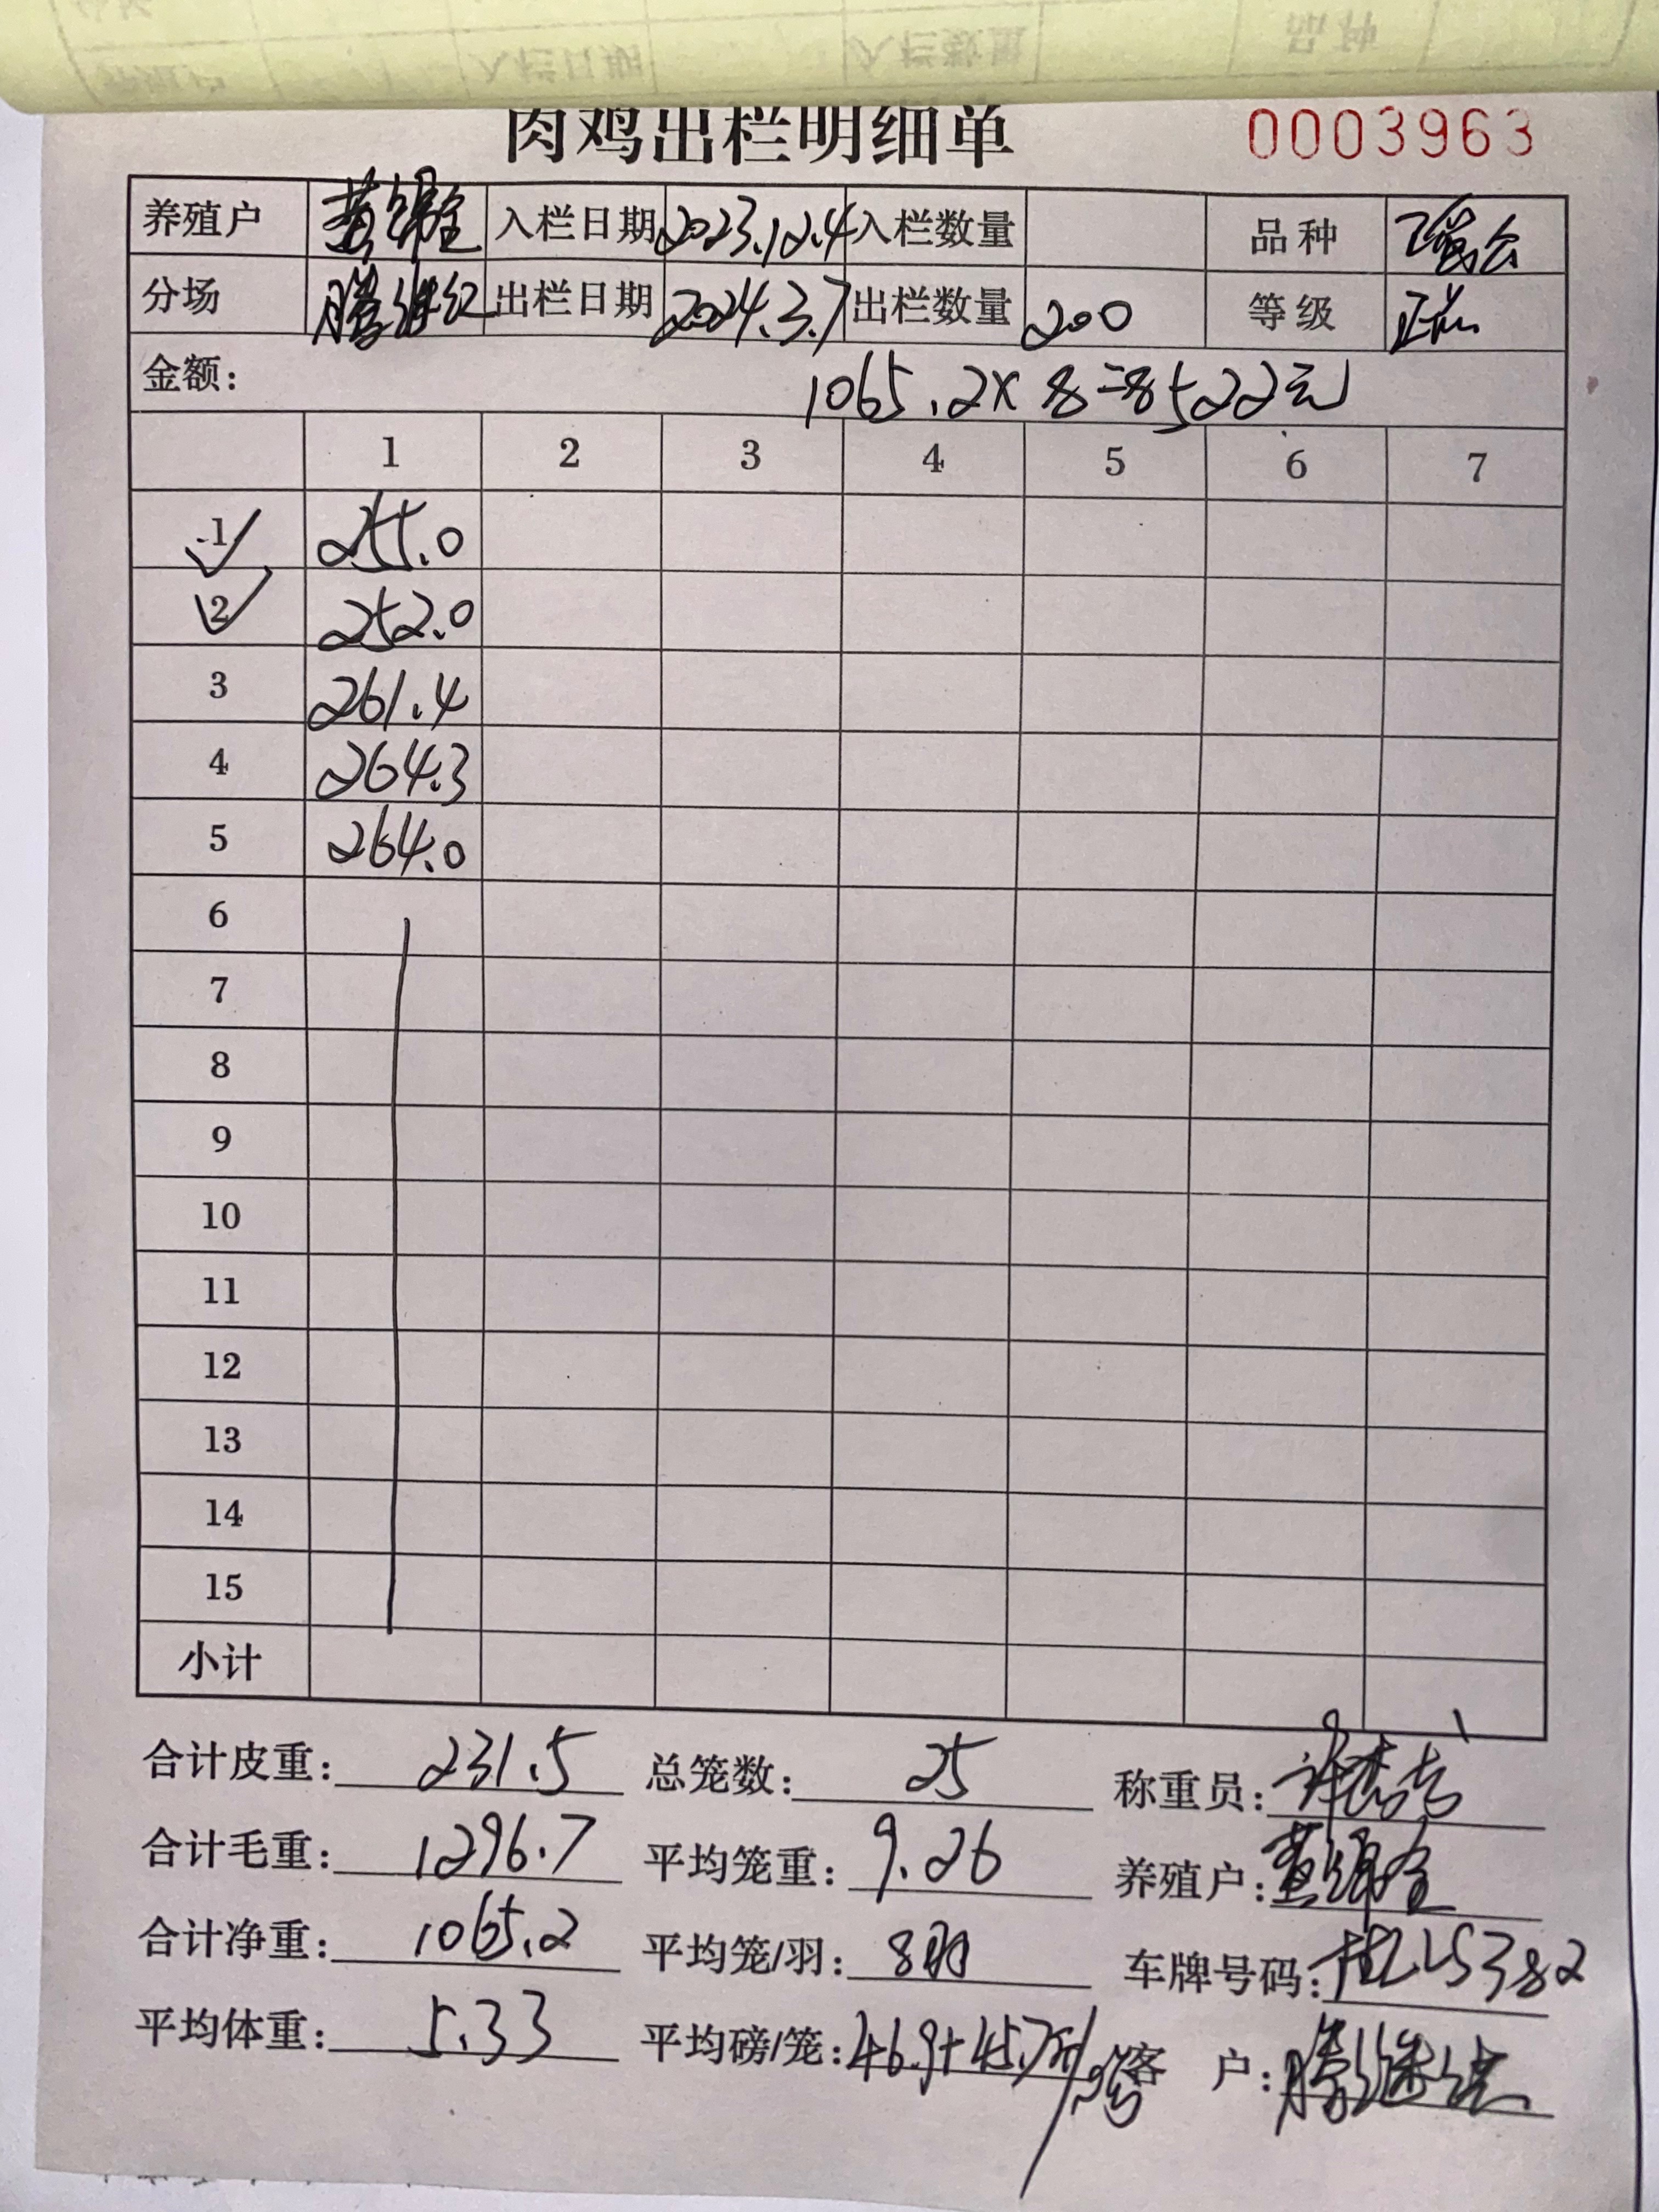 肉鸡出栏明细单 0003963
养殖户 黄锦全 入栏日期 2023.12.4 入栏数量 品种
分场 滕继红 出栏日期 2024.3.7 出栏数量 200 等级
金额: 1065.2×8=8522元
1 2 3 4 5 6 7
1 255.0
2 252.0
3 261.4
4 264.3
5 264.0
6
7
8
9
10
11
12
13
14
15
小计
合计皮重: 231.5 总笼数: 25 称重员:
合计毛重: 1296.7 平均笼重: 9.26 养殖户: 黄锦全
合计净重: 1065.2 平均笼/羽: 8羽 车牌号码: 5382
平均体重: 5.33 平均磅/笼: 46.9+45.7 客 户: